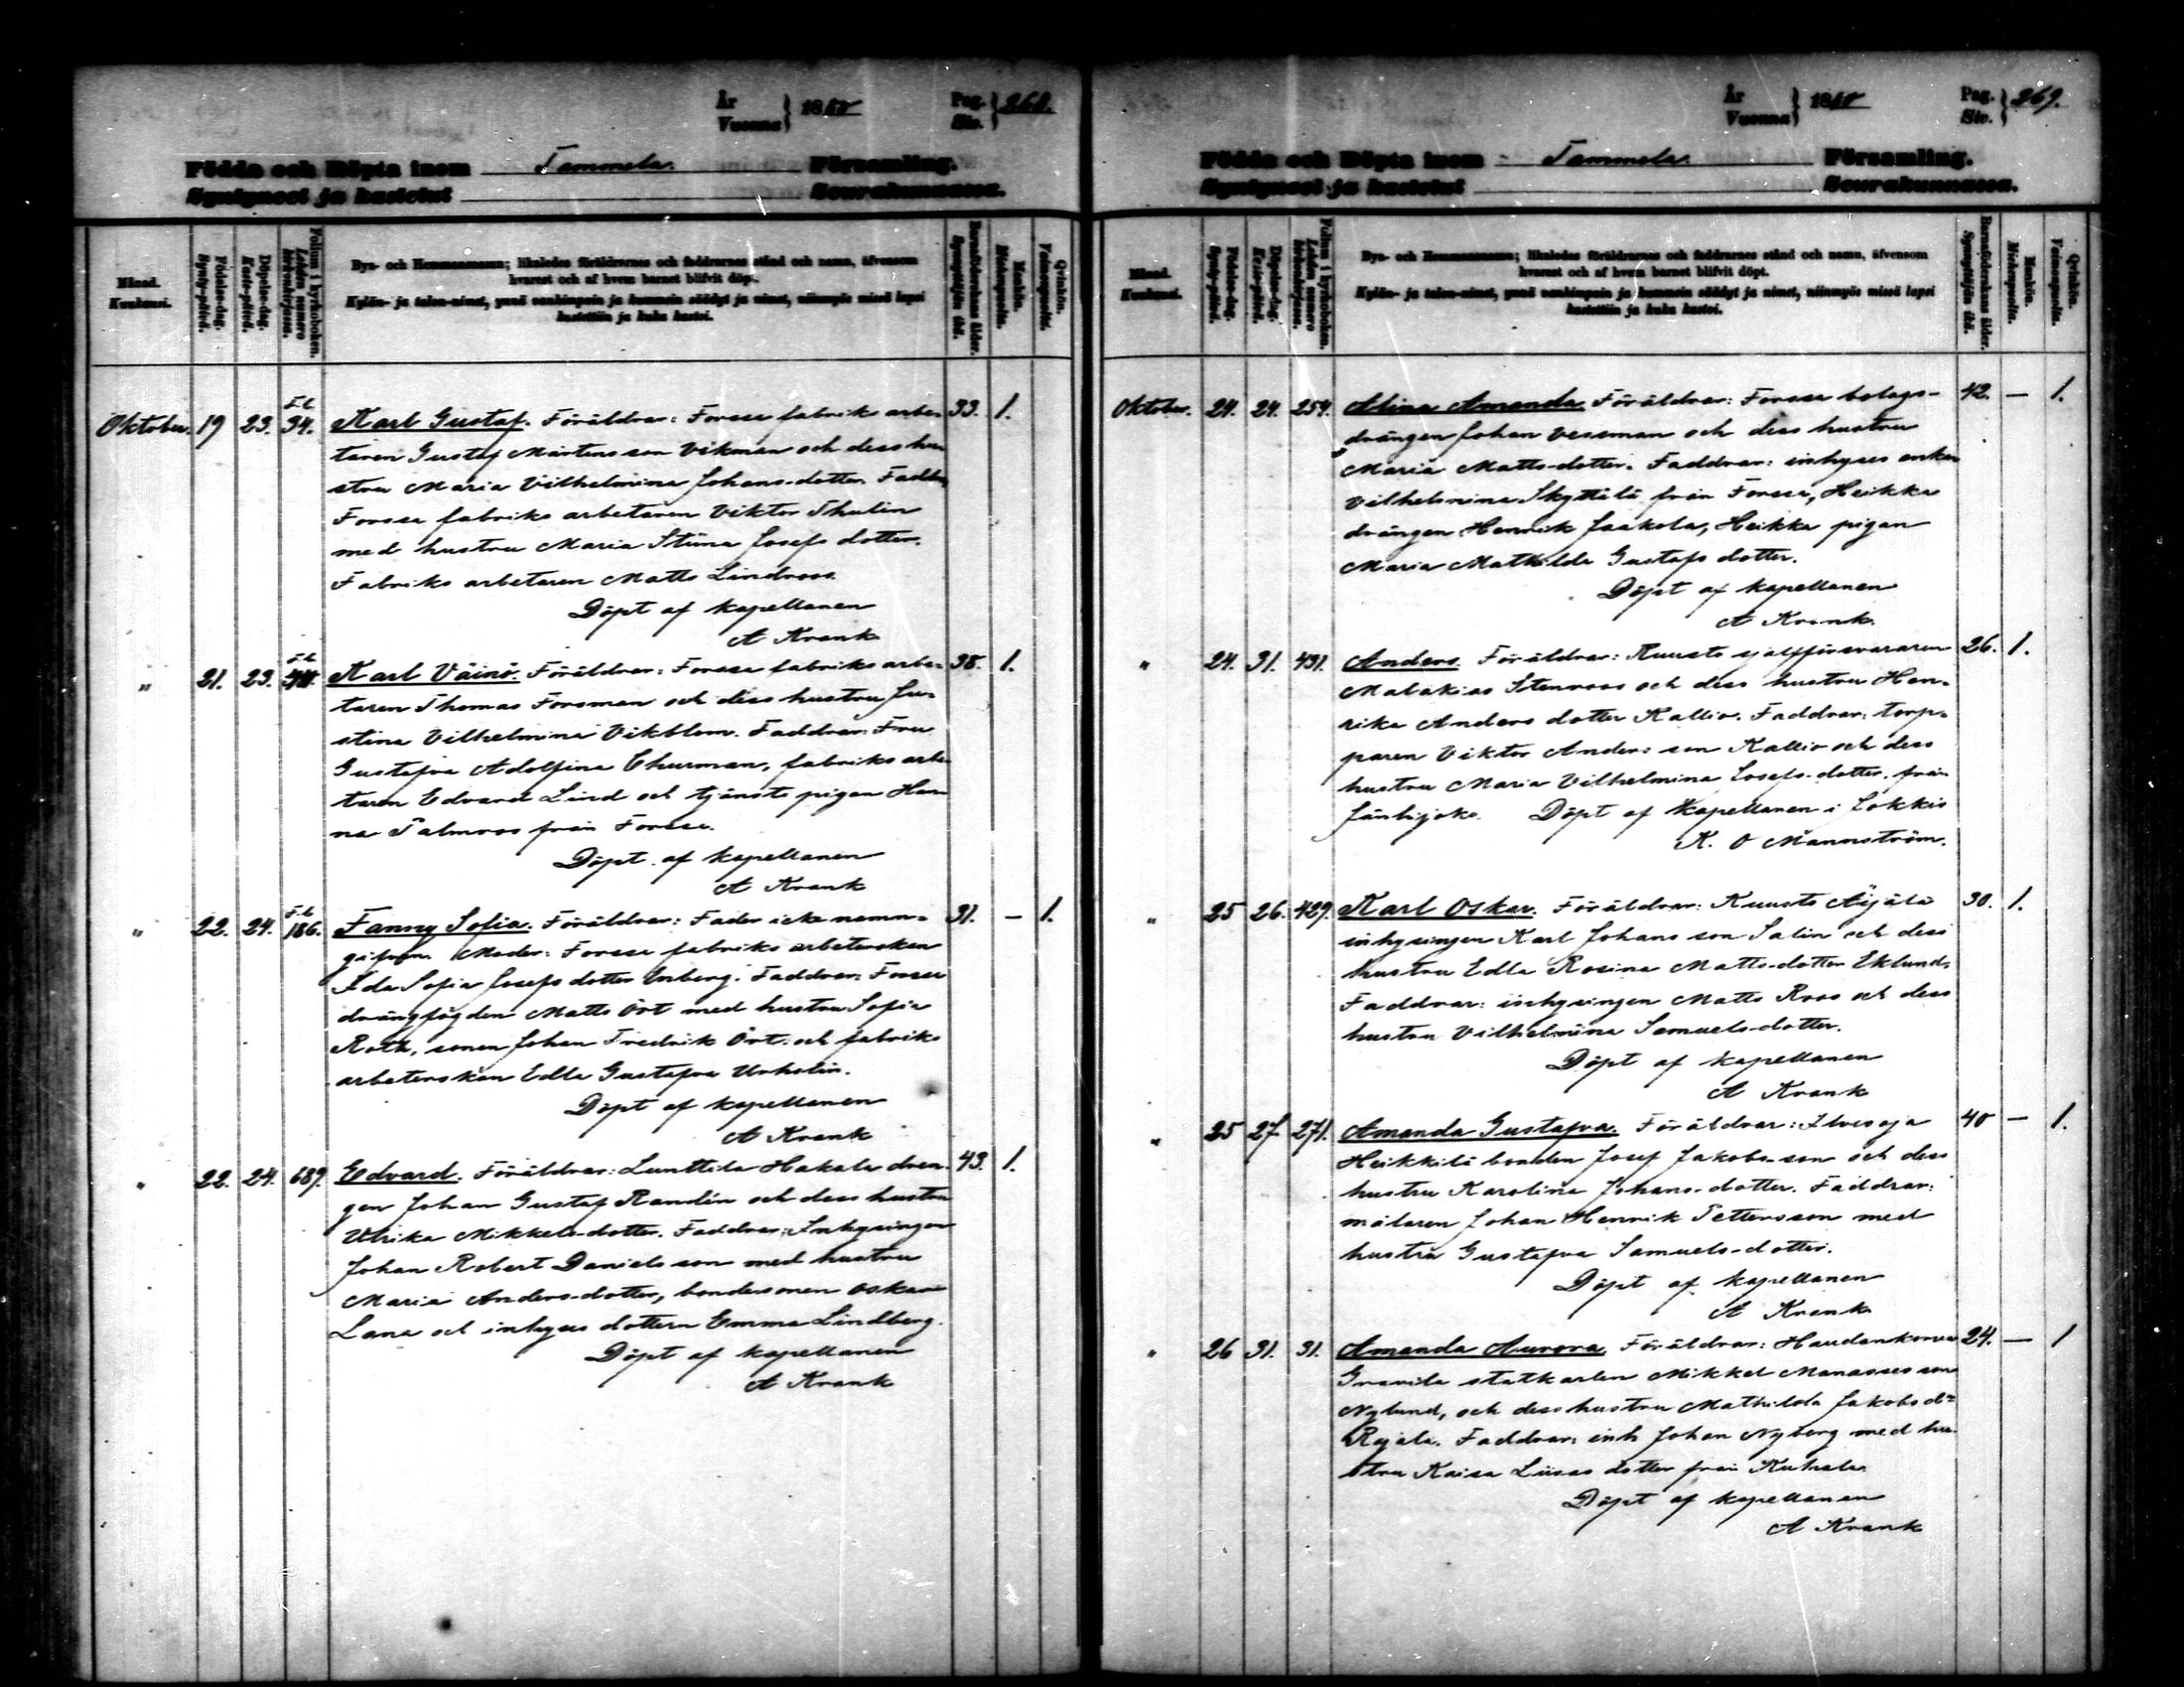 År
Vuonna } 18
Pag.
Siv. } 268.
Födda och Döpta inom Tammela. Församling.
Syntyneet ja kastetut Seurakunnassa.
Månad.
Kuukausi.
Födelse-dag.
Synty-päivä.
Döpelse-dag.
Kaste-päivä.
Folium i kyrkoboken.
Lehden numero kirkonkirjassa.
Bya- och Hemmansnamn; likaledes föräldrarnes och faddrarnes stånd och namn, äfvensom
hvarest och af hvem barnet blifvit döpt.
Kylän- ja talon-nimet, ynnä vanhimpain ja kummein säädyt ja nimet, niinmyös missä lapsi
kastettiin ja kuka kastoi.
Barnaföderskans ålder.
Synnyttäjän ikä.
Mankön.
Miehenpuolta.
Qvinkön.
Vaimonpuolta.
Oktober. 19 23. F.b. 34. Karl Gustaf. Föräldrar: Forssa fabriks arbe- 33. 1.
taren Gustaf Mårtens son Vikman och dess hu
stru Maria Vilhelmina Johans-dotter. Faddr.
Forssa fabriks arbetaren Viktor Thulin
med hustru Maria Stina Josefs dotter.
Fabriks arbetaren Matts Lindroos.
Döpt af kapellanen
A Krank
" 21. 23. F.b. Karl Väinö. Föräldrar: Forssa fabriks arbe- 38. 1.
taren Thomas Forsman och dess hustru Ju-
stina Vilhelmina Vikblom. Faddrar: Fru
Gustafva Adolfina Churman, fabriks arbe-
taren Edvard Lind och tjensts pigan Han
na Palmroos från Forssa.
Döpt af kapellanen
A Krank
" 22. 24. F.b. 186. Fanny Sofia. Föräldrar: Fader icke namn- 31. – 1.
gifven. Moder: Forssa fabriks arbeterskan
Ida Sofia Josefs dotter Enberg. Faddrar: Forssa
drängfogden Matts Ört med hustru Sofia
Roth, sonen Johan Fredrik Ört. och fabriks
arbeterskan Edla Gustafva Urholin.
Döpt af kapellanen
A Krank
" 22. 24. 689. Edvard. Föräldrar: Lunttila Hakala drän- 43. 1.
gen Johan Gustaf Randén och dess hustru
Ulrika Mikkels-dotter. Faddrar: Inhysingen
Johan Robert Daniels son med hustru
Maria Anders-dotter, bondesonen Oskar
Lana och inhyses dottern Emma Lindberg.
Döpt af kapellanen
A Krank
År
Vuonna } 18
Pag.
Siv. } 269.
Födda och Döpta inom Tammela. Församling.
Syntyneet ja kastetut Seurakunnassa.
Månad.
Kuukausi.
Födelse-dag.
Synty-päivä.
Döpelse-dag.
Kaste-päivä.
Folium i kyrkoboken.
Lehden numero kirkonkirjassa.
Bya- och Hemmansnamn; likaledes föräldrarnes och faddrarnes stånd och namn, äfvensom
hvarest och af hvem barnet blifvit döpt.
Kylän- ja talon-nimet, ynnä vanhimpain ja kummein säädyt ja nimet, niinmyös missä lapsi
kastettiin ja kuka kastoi.
Barnaföderskans ålder.
Synnyttäjän ikä.
Mankön.
Miehenpuolta.
Qvinkön.
Vaimonpuolta.
Oktober. 24. 24. 254. Alina Amanda. Föräldrar: Forssa bolags- 42. – 1.
drängen Johan Vesman och dess hustru
Maria Matts-dotter. Faddrar: inhyses enkan
Vilhelmina Skyttälä från Forssa, Heikka
drängen Henrik Jaakola, Heikka pigan
Maria Mathilda Gustafs dotter.
Döpt af kapellanen
A Krank.
" 24. 31. 431. Anders. Föräldrar: Kuusto sjelfförsvararen 26. 1.
Malakias Stenroos och dess hustru Hen-
rika Anders dotter Kallio. Faddrar: torp-
paren Viktor Anders son Kallio och dess
hustru Maria Vilhelmina Josefs-dotter. från
Jänhijoki. Döpt af kapellanen i Lokkis
K. O Mannström.
" 25 26. 429. Karl Oskar. Föräldrar: Kuusto Äijälä 30. 1.
inhysingen Karl Johans son Salin och dess
hustru Edla Rosina Matts-dotter Eklund.
Faddrar: inhysingen Matts Roos och dess
hustru Vilhelmina Samuels-dotter.
Döpt af kapellanen
A Krank
" 25 27 271. Amanda Gustafva. Föräldrar: Ilvesoja 40 – 1.
Heikkilä bonden Josef Jakobs-son och dess
hustru Karolina Johans-dotter. Faddrar:
målaren Johan Henrik Pettersson med
hustru Gustafva Samuels-dotter.
Döpt af kapellanen
A Krank
" 26 31. 31. Amanda Aurora. Föräldrar: Haudankorva 24. – 1
statkarlen Mikkel Manasses son
Nylund, och dess hustru Mathilda Jakobs dr
Rajala. Faddrar: inh Johan Nyberg med hu-
stru Kaisa Liisas dotter från Kuhala
Döpt af kapellanen
A Krank